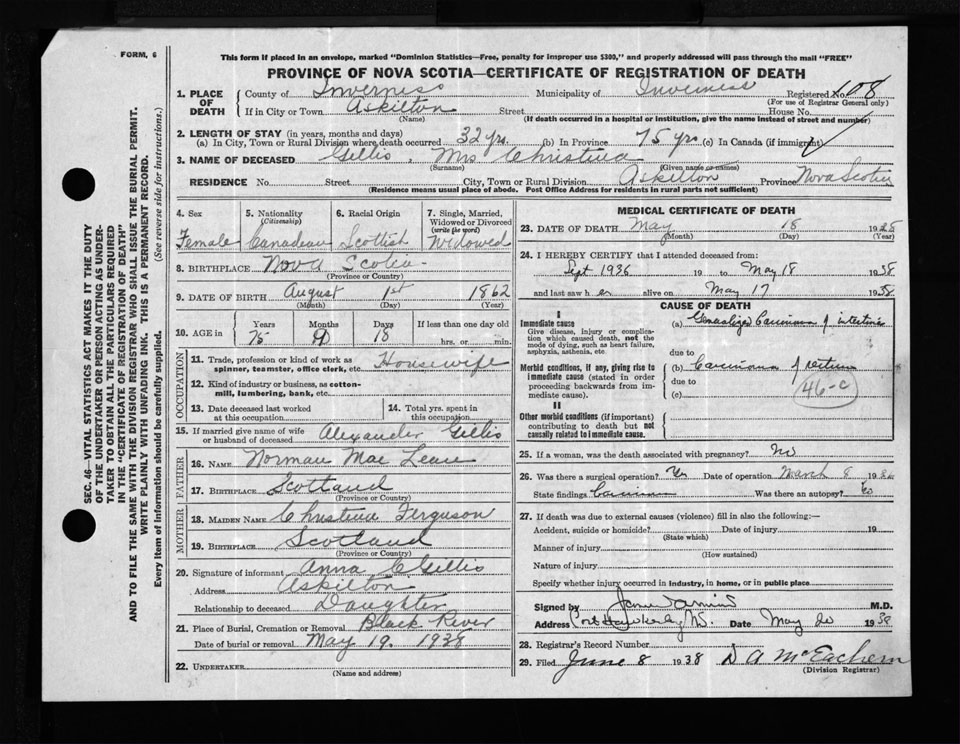 FORM, 6
This form if placed in an envelope, marked "Dominion Statistics—Free, penalty for improper use $300," and properly addressed will pass through the mail "FREE"
PROVINCE OF NOVA SCOTIA—CERTIFICATE OF REGISTRATION OF DEATH
SEC. 46—VITAL STATISTICS ACT MAKES IT THE DUTY
OF THE UNDERTAKER OR PERSON ACTING AS UNDER-
TAKER TO OBTAIN ALL THE PARTICULARS REQUIRED
IN THE "CERTIFICATE OF REGISTRATION OF DEATH"
AND TO FILE THE SAME WITH THE DIVISION REGISTRAR WHO SHALL ISSUE THE BURIAL PERMIT.
WRITE PLAINLY WITH UNFADING INK. THIS IS A PERMANENT RECORD.
Every item of information should be carefully supplied. (See reverse side for instructions.)
1. PLACE OF DEATH
County of Inverness Municipality of Inverness Registered No. 108
(For use of Registrar General only)
If in City or Town Askilton Street House No.
(Name) (If death occurred in a hospital or institution, give the name instead of street and number)
2. LENGTH OF STAY (in years, months and days)
(a) In City, Town or Rural Division where death occurred 32 yrs. (b) In Province 75 yrs (c) In Canada (if immigrant)
3. NAME OF DECEASED Gillis, Mrs Christina
(Surname) (Given name or names)
RESIDENCE No. Street City, Town or Rural Division Askilton Province Nova Scotia
(Residence means usual place of abode. Post Office Address for residents in rural parts not sufficient)
4. Sex
Female
5. Nationality
(Citizenship)
Canadian
6. Racial Origin
Scottish
7. Single, Married,
Widowed or Divorced
(write the word)
Widowed
8. BIRTHPLACE Nova Scotia
(Province or Country)
9. DATE OF BIRTH August 1st 1862
(Month) (Day) (Year)
10. AGE in
Years Months Days If less than one day old
75 9 18 hrs. or min.
OCCUPATION
11. Trade, profession or kind of work as
spinner, teamster, office clerk, etc. Housewife
12. Kind of industry or business, as cotton-
mill, lumbering, bank, etc.
13. Date deceased last worked
at this occupation
14. Total yrs. spent in
this occupation
15. If married give name of wife
or husband of deceased Alexander Gillis
FATHER
16. NAME Norman Mac Lean
17. BIRTHPLACE Scotland
(Province or Country)
MOTHER
18. MAIDEN NAME Christina Ferguson
19. BIRTHPLACE Scotland
(Province or Country)
20. Signature of informant Anna C Gillis
Address Askilton
Relationship to deceased Daughter
21. Place of Burial, Cremation or Removal Black River
Date of burial or removal May 19, 1938
22. UNDERTAKER
(Name and address)
MEDICAL CERTIFICATE OF DEATH
23. DATE OF DEATH May 18 1938
(Month) (Day) (Year)
24. I HEREBY CERTIFY that I attended deceased from:
Sept 1936 19 to May 18 1938
and last saw her alive on May 17 1938
CAUSE OF DEATH
I
Immediate cause
Give disease, injury or complica-
tion which caused death, not the
mode of dying, such as heart failure,
asphyxia, asthenia, etc
(a) Carcinoma of intestine
due to
Morbid conditions, if any, giving rise to
immediate cause (stated in order
proceeding backwards from im-
mediate cause).
(b) Carcinoma of rectum
due to
(c)
46-c
II
Other morbid conditions (if important)
contributing to death but not
causally related to immediate cause.
25. If a woman, was the death associated with pregnancy? No
26. Was there a surgical operation? Yes Date of operation March 8 193
State findings Was there an autopsy? No
27. If death was due to external causes (violence) fill in also the following:—
Accident, suicide or homicide? Date of injury 19
(State which)
Manner of injury
(How sustained)
Nature of injury
Specify whether injury occurred in industry, in home, or in public place
Signed by M.D.
Address Port Hawkesbury NS. Date May 20 1938
28. Registrar's Record Number
29. Filed June 8 1938 D A McEachern
(Division Registrar)